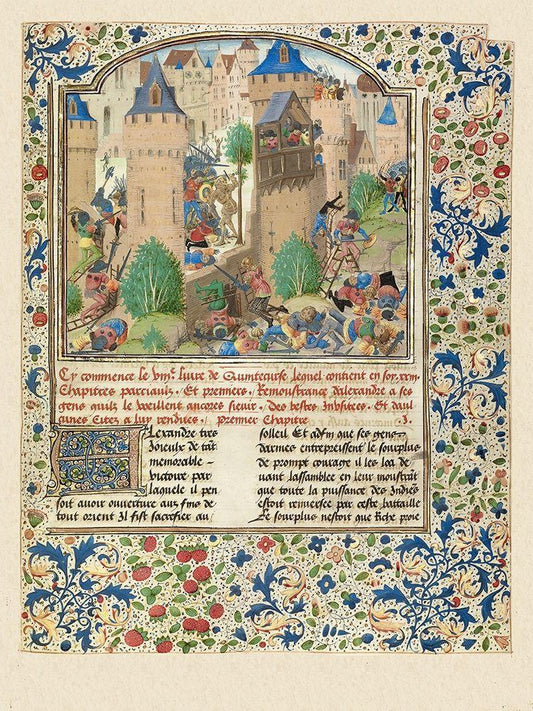 Cy commence le viiie livre de Quintecurse lequel contient en soy xxiii
Chapitres parciaulx. Et premiers. Remoustrance dalexandre a ses
gens quilz le voeillent ancores sievir. Des bestes Indoises. Et daul
cunes Citez a luy rendues. premier Chapitre .I.
Alexandre tres
Joieulx de tät
memorable
victoire par
laquele il pen
soit avoir ouverture aux fins de
tout orient Il fist sacrifier au
solleil Et adfin que ses gens
darmes entrepreissent le sourplus
de prompt courage il les loa de
uant lassamblee en leur moustrāt
que toute la puissance des Indiēs
estoit renversee par ceste bataille
Le sourplus nestoit que riche proie